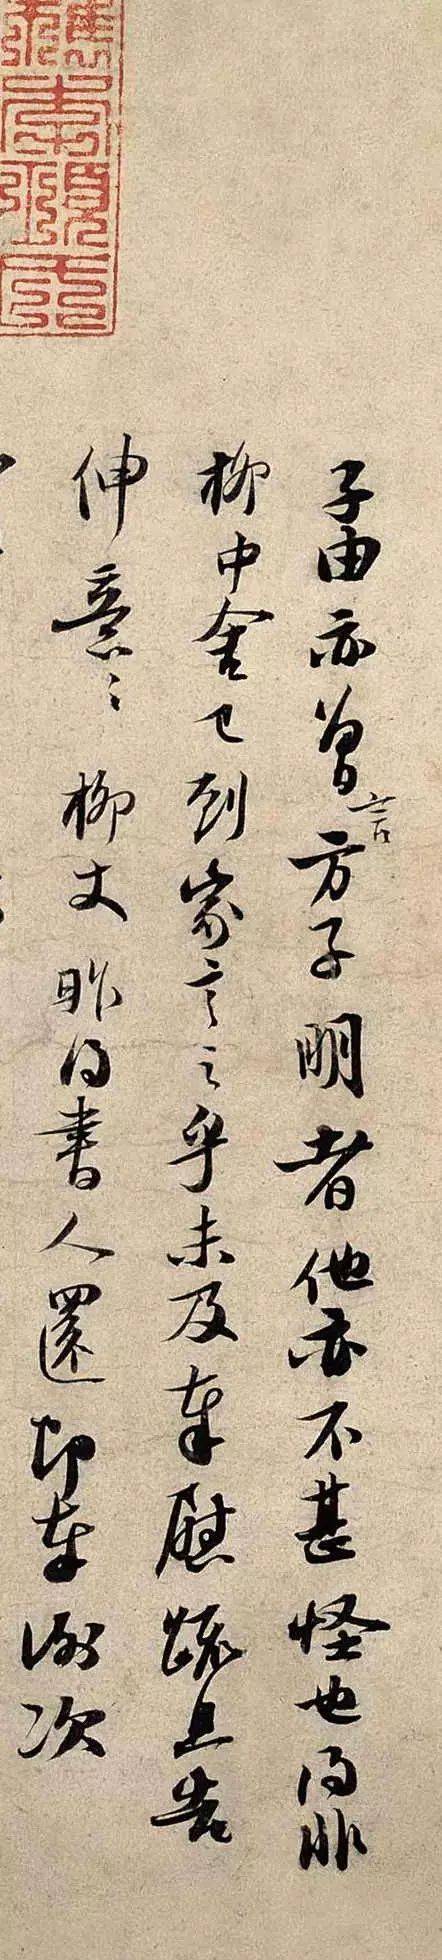 子由亦曾言方子明者他亦不甚怪也得非
柳中舍已到家言之乎未及奉慰疏且告
伸意々柳丈昨得書人還即奉謝次